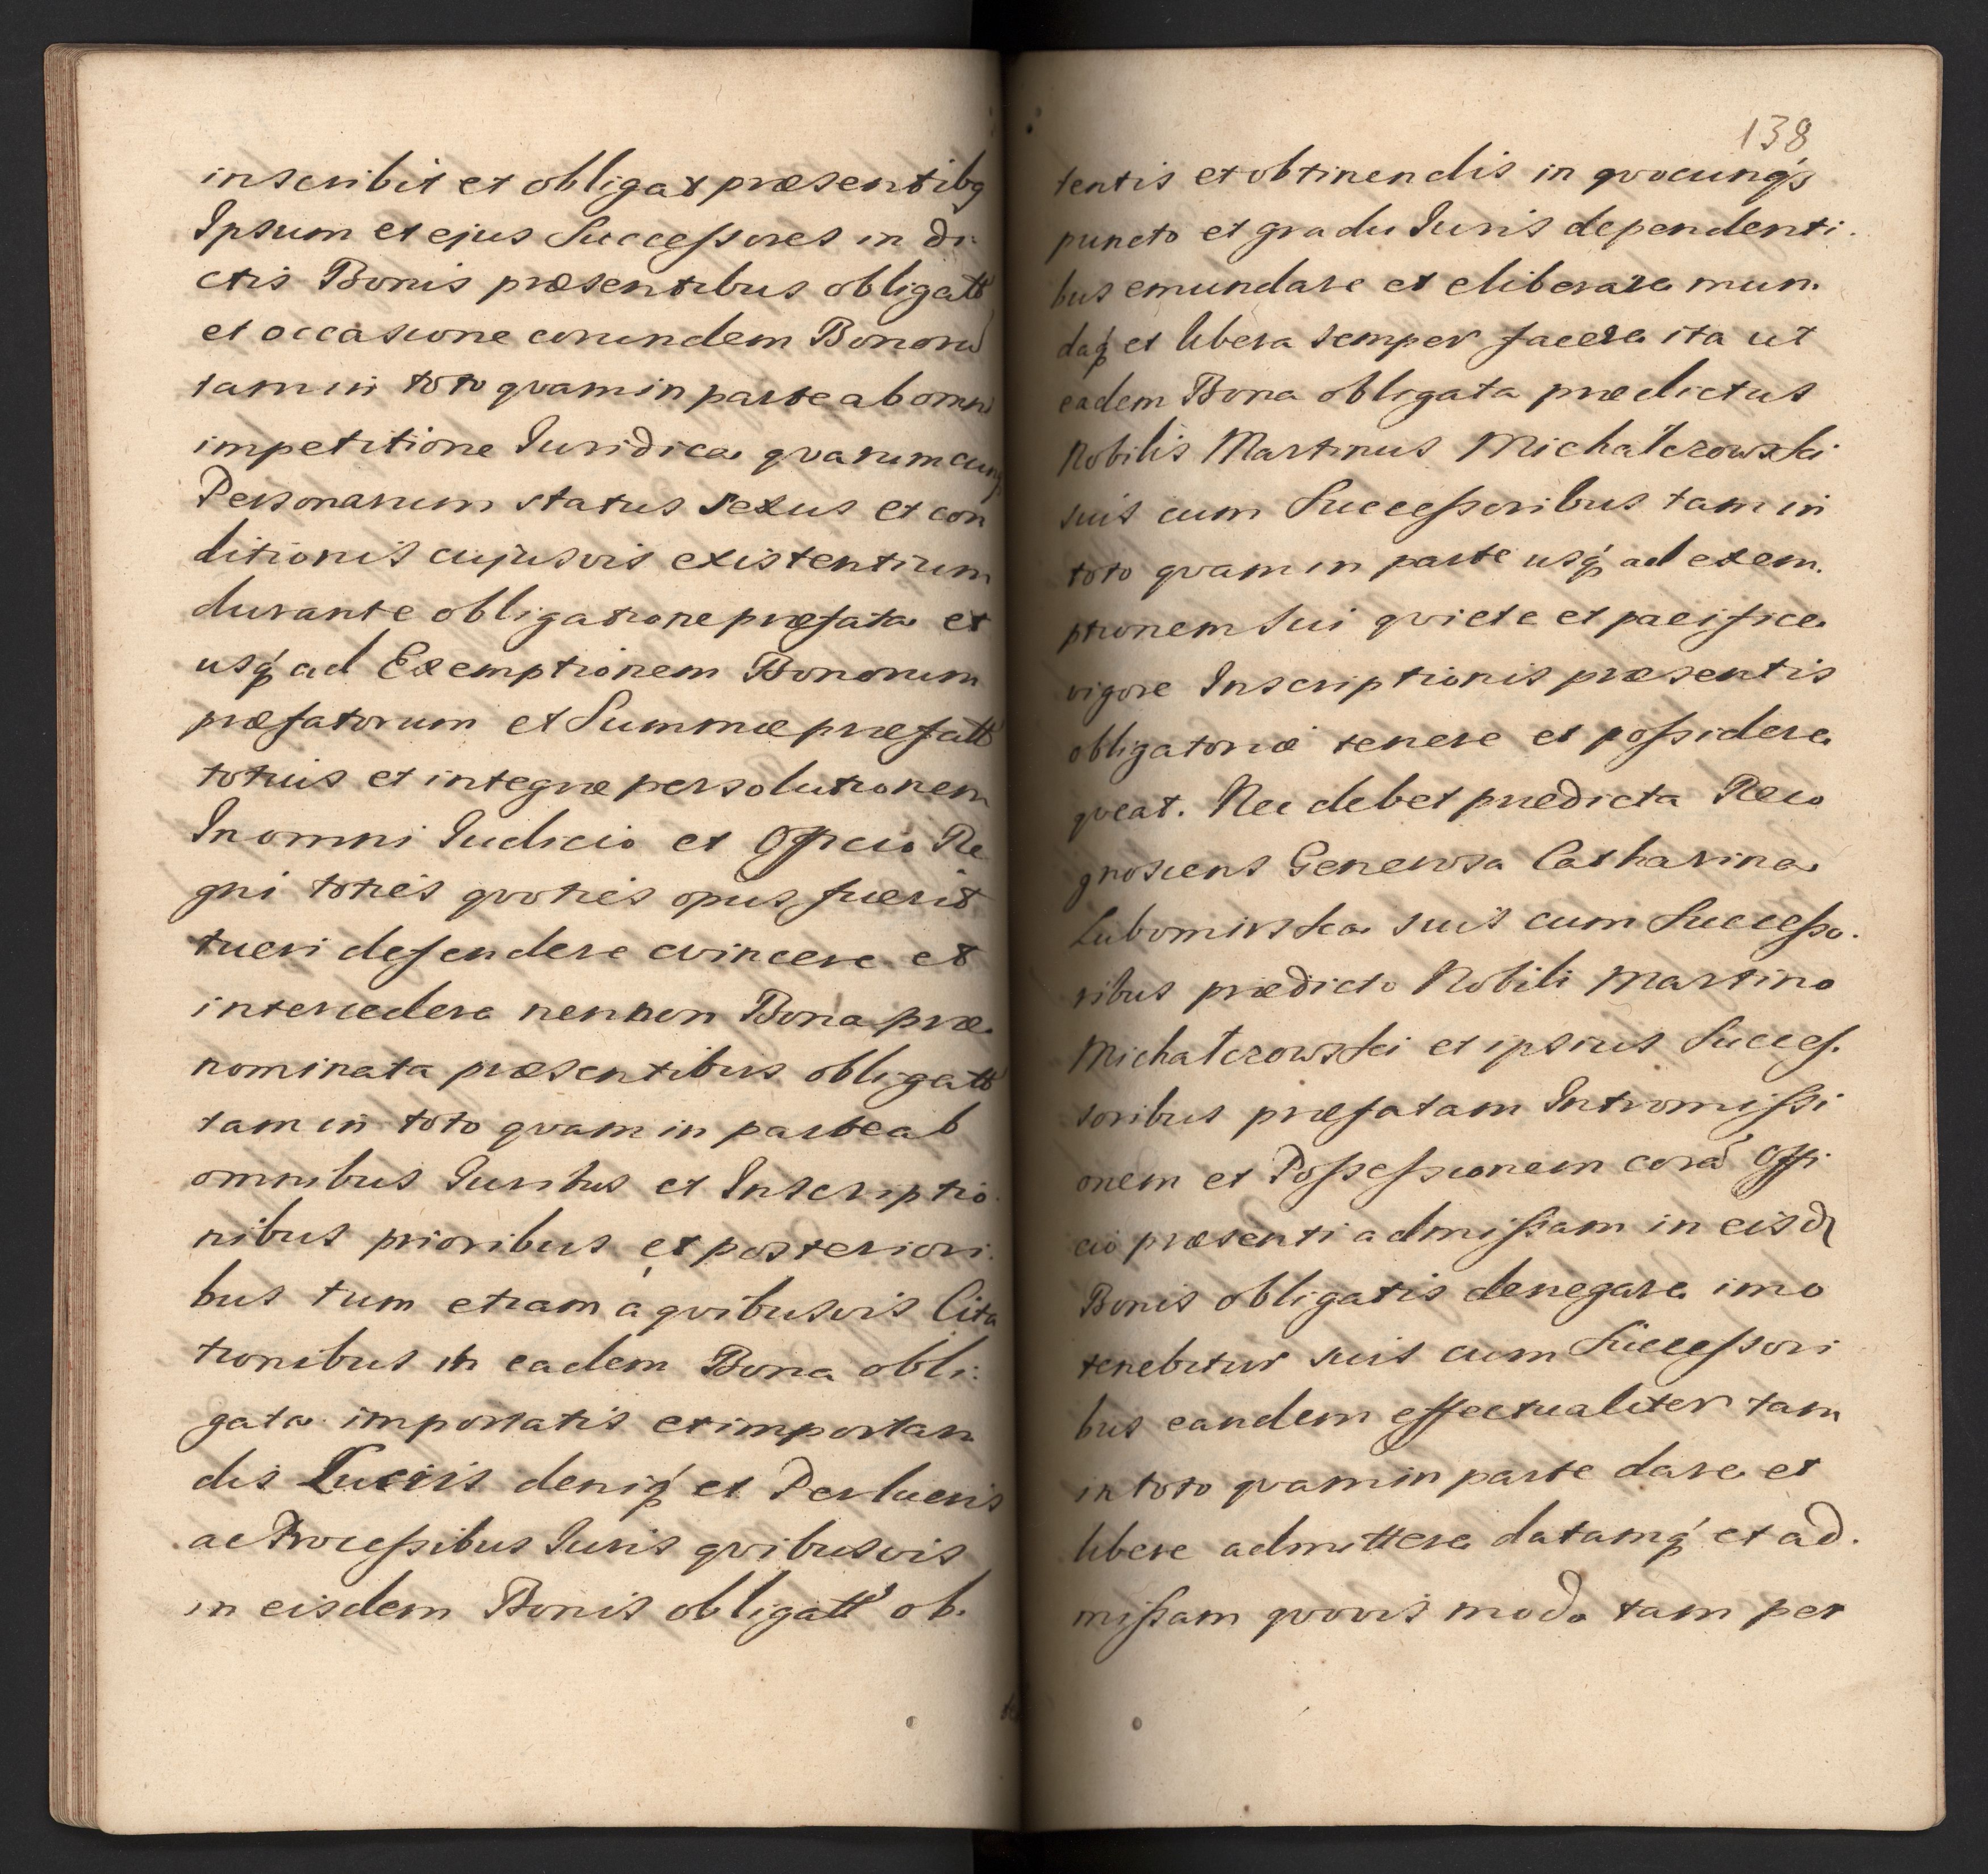 inscribit et obligat præsentibq
Ipsum et ejus Successores in di-
ctis Bonis præsentibus obligatt
et occasione eorundem Bonorū
tam in toto qvam in parte ab omni
impetitione Iuridica qvarumcunq
Personarum status sexus et con
ditionis cujusvis existentium
durante obligatione præfata et
usq́ ad Exemptionem Bonorum
præfatorum et Summæ præfatt
totius et integræ persolutionem
In omni Iudicio et Officio Re
gni toties qvoties opus fuerit
tueri defendere evincere et
intercedere nennon Bona præ
nominata præsentibus obligatt
tam in toto qvam in parte ab
omnibus Iuribus et Inscriptio
nibus prioribus et posteriori
bus tum etiam à qvibusvis Cita
tionibus in eadem Bona obli:
gata importatis et importan
dis Lucris deniq́ et Perlucris
ac Processibus Iuris qvibusvis
in eisdem Bonis obligatt ob.
138
tentis et obtinendis in qvocunq́s
puncto et gradu Iuris dependenti.
bus emundare et eliberare mun.
daq́ et libera semper facere ita ut
eadem Bona obligata prædictus
Nobilis Martinus Michałczowski
suis cum Successoribus tam in
toto qvam in parte usq́ ad exem.
ptionem sui qviete et pacifice
vigore Inscriptionis præsentis
obligatoriæ tenere et possidere
qveat. Nec debet prædicta Reco
gnoscens Generosa Catharina
Lubomirska suis cum Successo.
ribus prædicto Nobili Martino
Michałczowski et ipsius Succes.
soribus præfatam Intromissi
onem et Possessionem corā Offi
cio præsenti admissam in eisd
Bonis obligatis denegare imo
tenebitur suis cum Successori
bus eandem effectualiter tam
in toto qvam in parte dare et
libere admittere datamq́ et ad.
missam qvovis modo tam per